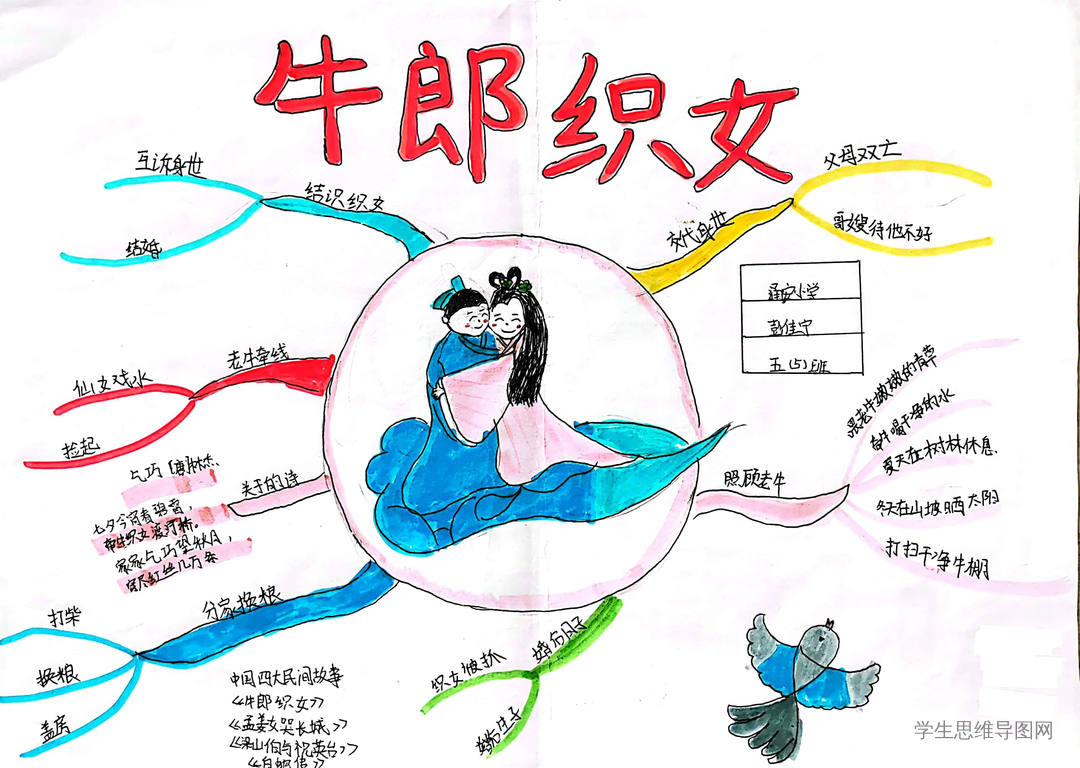 牛郎织女
父母双亡
交代身世
哥嫂待他不好
五(5)班
跟老牛嫩嫩的青草
给牛喝干净的水
夏天在树林休息
照顾老牛
冬天在山坡晒太阳
打扫干净牛棚
婚后日子
织女被抓
婚后生子
分家换粮
打柴
换粮
盖房
关于的诗
七夕今宵看碧霄,
牵牛织女渡河桥。
家家乞巧望秋月,
穿尽红丝几万条
老牛牵线
仙女戏水
捡起
结识织女
互诉身世
结婚
中国四大民间故事
《牛郎织女》
《孟姜女哭长城》
《梁山伯与祝英台》
《白蛇传》
学生思维导图网